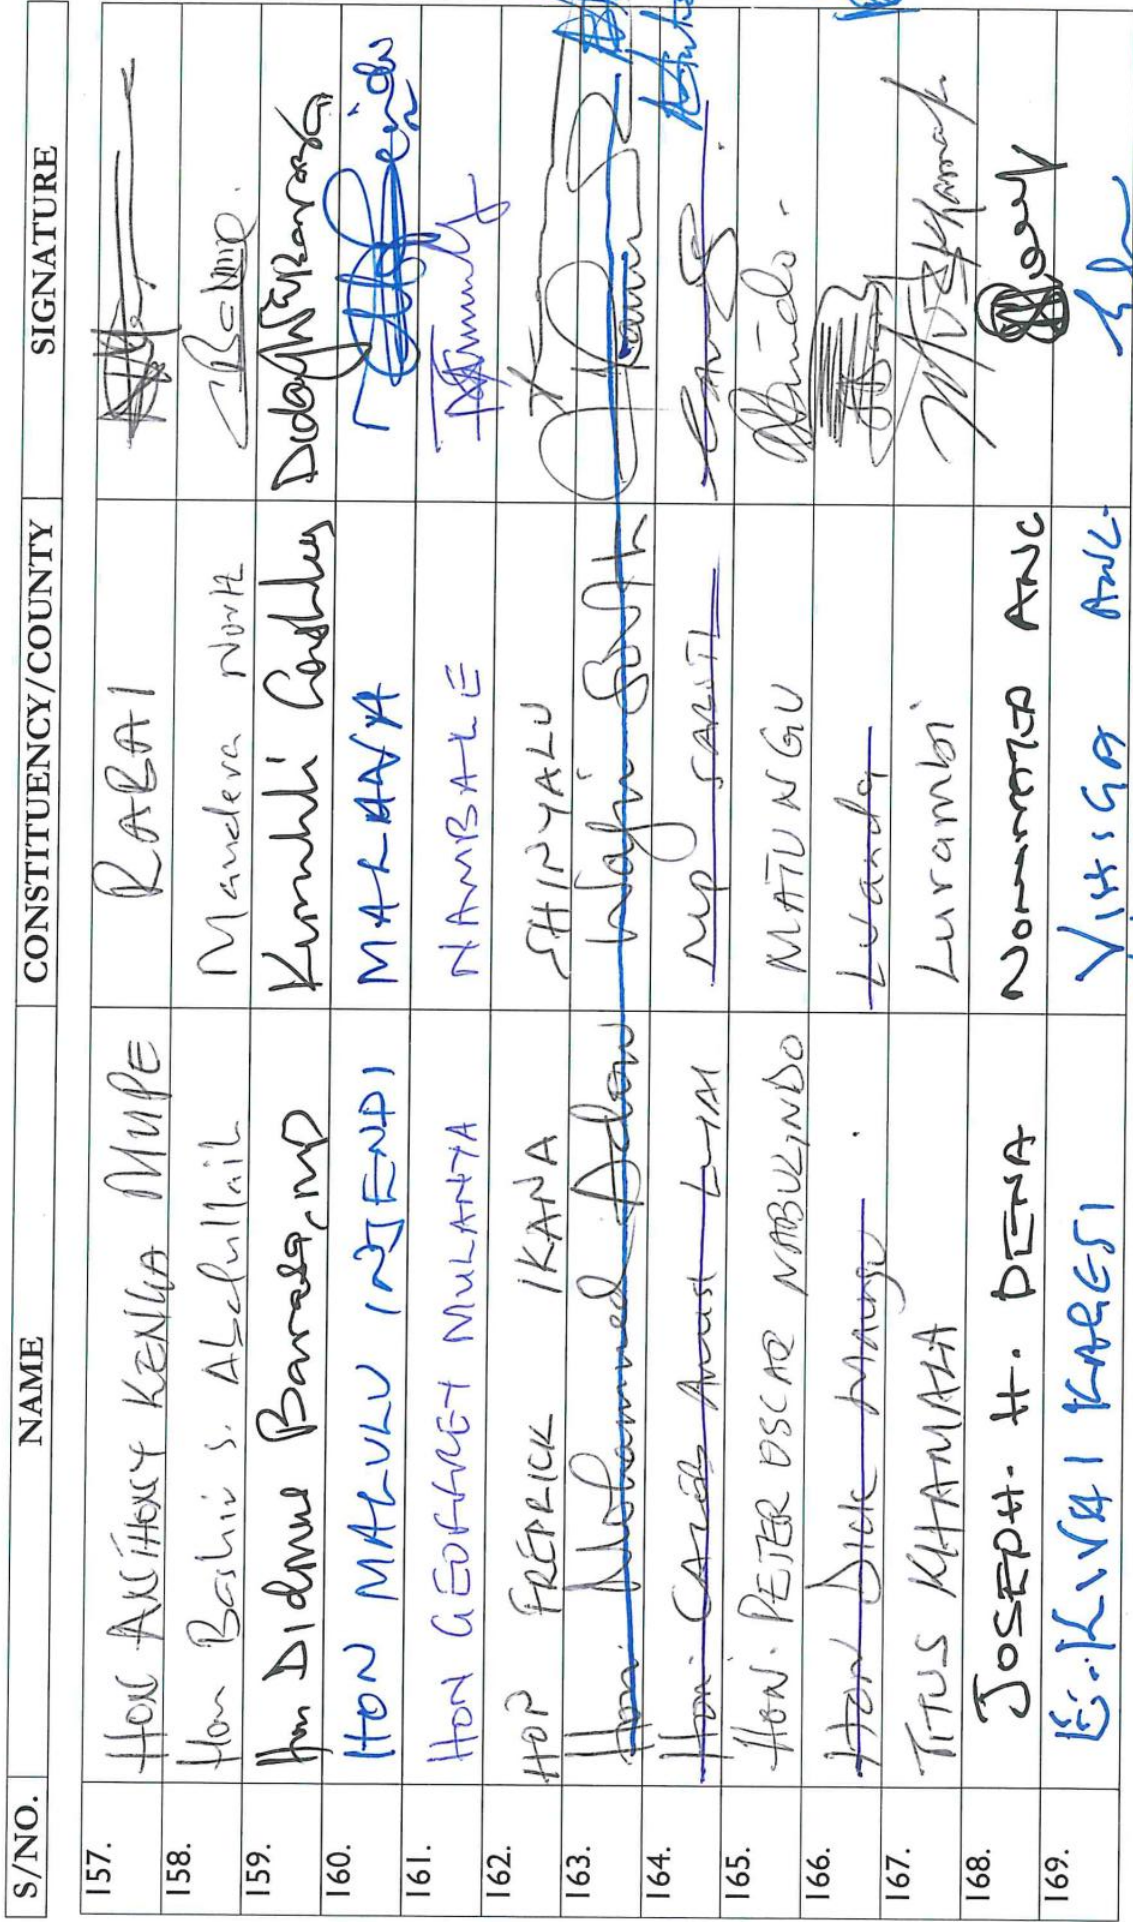 S/NO. NAME CONSTITUENCY/COUNTY SIGNATURE
157. HON ANTHONY KENGA MUPE RABAI
158. Hon Bashir S. Abdullahi Mandera North
159. Hon Didmus Barasa, MP Kimilili
160. HON MALULU INJENDI MALAVA
161. HON GEOFFREY MULANYA NAMBALE
162. HON FREDRICK IKANA SHINYALU
163. Hon. Mohammed Adow Wajir South
164. Hon. MP
165. HON. PETER OSCAR NABULINDO MATUNGU
166. HON Dick Maungu Luanda
167. TITUS KHAMALA Lurambi
168. JOSEPH H. DENA NOMINATED ANC
169. KAGESI VIHIGA ANC